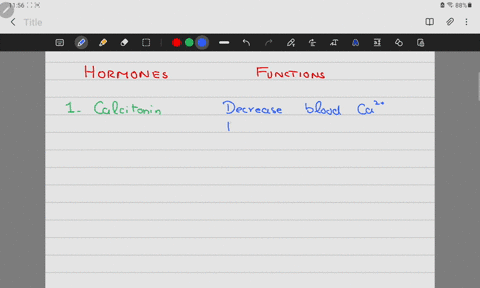 11:56
88%
Title
HORMONES FUNCTIONS
1- Calcitonin Decrease blood Ca²⁺